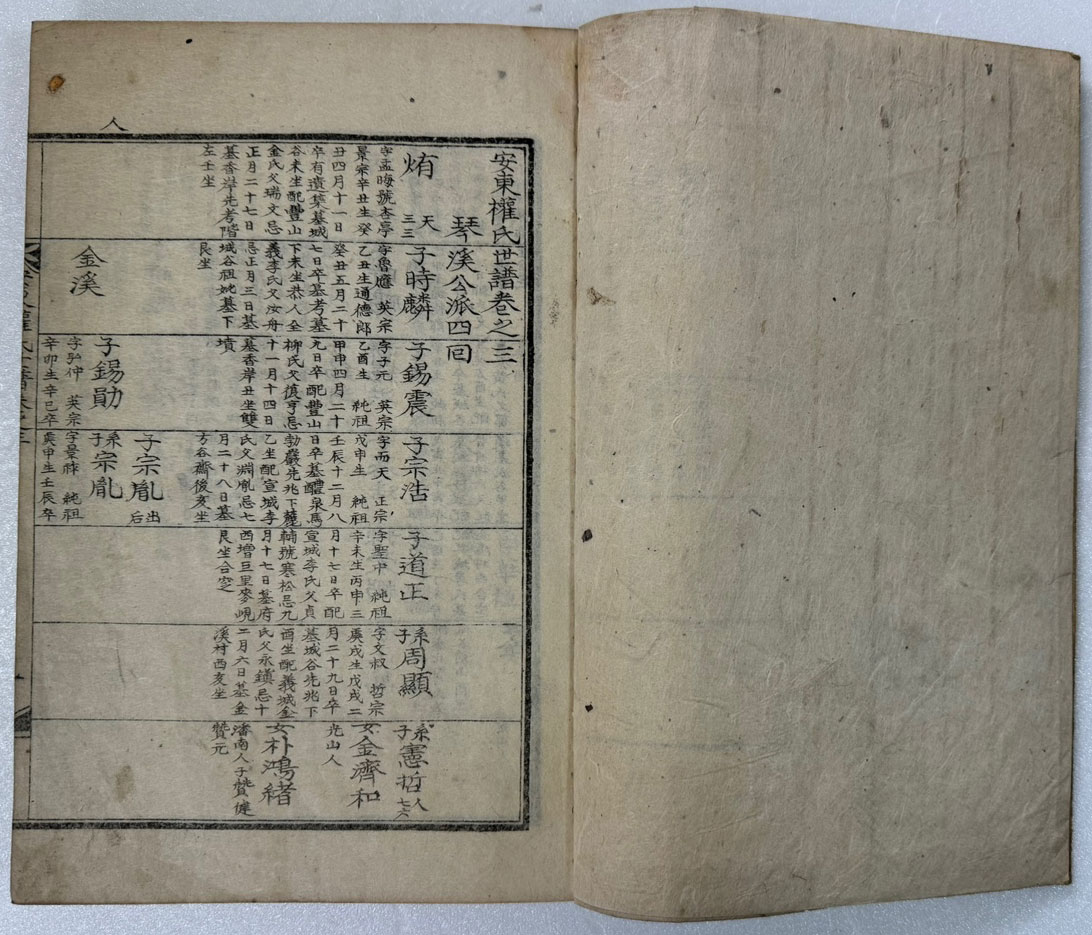 人
安東權氏世譜卷之三
琴溪公派四回
烠
天
三三
字孟晦號杏亭
景宗辛丑生癸
丑四月十一日
卒有遺藁墓城
谷未坐配豊山
金氏父瑞文忌
正月二十七日
墓香岸先考階
左壬坐
子時麟
字魯膺 英宗
乙丑生通德郎
癸丑五月二十
七日卒墓考墓
下未坐恭人全
義李氏父汝舟
忌正月三日墓
城谷祖妣墓下
艮坐
子錫震
字子元 英宗
乙酉生 純祖
甲申四月二十
九日卒配豊山
柳氏父復亨忌
十一月十四日
墓香岸丑坐雙
墳
子宗浩
字而天 正宗
戊申生 純祖
壬辰十二月八
日卒墓醴泉馬
勃巖先兆下麓
乙坐配宣城李
氏父淵胤忌七
月二十八日墓
方谷齋後亥坐
子道正
字聖中 純祖
辛未生丙申三
月十七日卒配
宣城李氏父貞
輔號寒松忌九
月十七日墓府
西增巨里麥峴
艮坐合窆
系子周顯
字文叔 哲宗
庚戌生戊戌二
月二十九日卒
墓城谷先兆下
酉坐配義城金
氏父永鎭忌十
二月六日墓金
溪村西亥坐
系子憲哲
人
七六
女金濟和
光山人
女朴鴻緖
潘南人子贊健
贊元
金溪
子錫勛
字弘仲 英宗
辛卯生辛巳卒
子宗胤
出后
系子宗胤
字景曄 純祖
庚申生壬辰卒